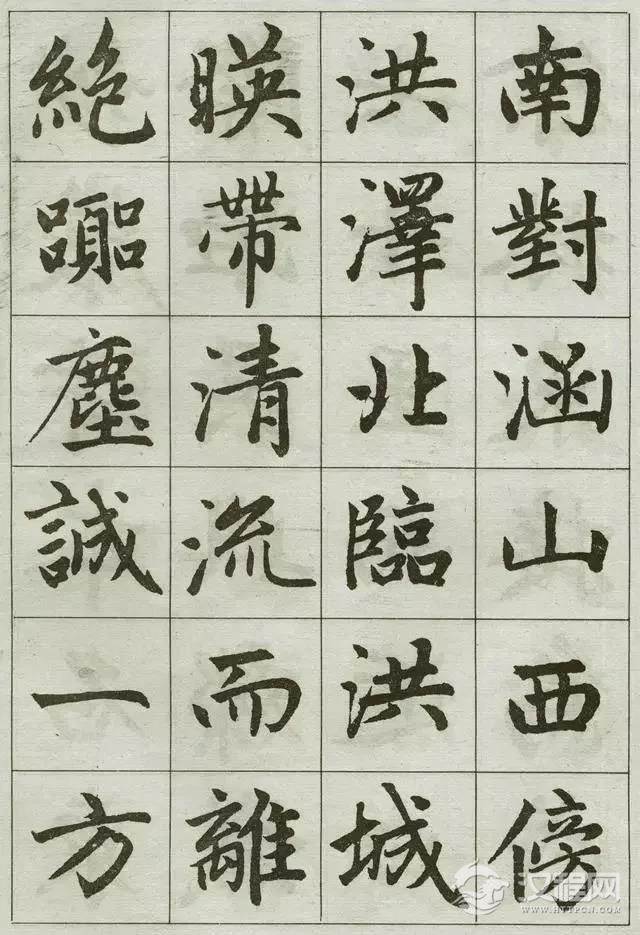 南對涵山西傍
洪澤北臨洪城
暎帶清流而離
絶躢塵誠一方
汉程网
WWW.HTTPCN.COM